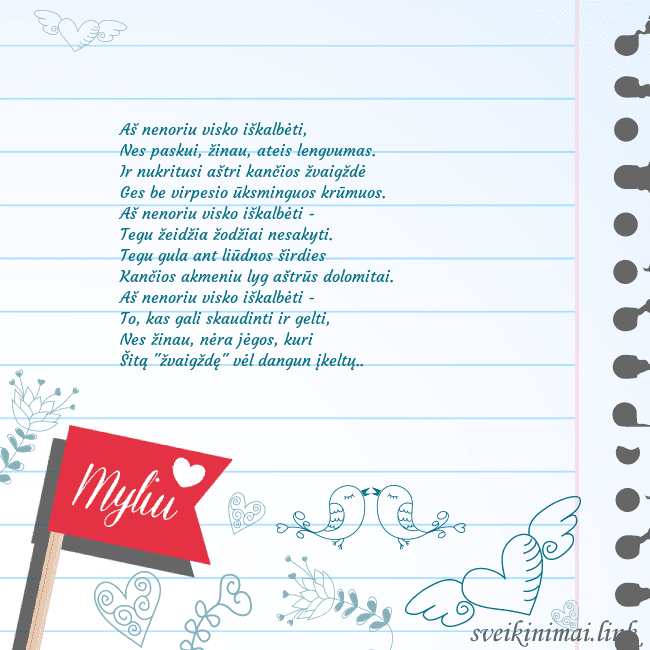 Aš nenoriu visko iškalbėti,
Nes paskui, žinau, ateis lengvumas.
Ir nukritusi aštri kančios žvaigždė
Ges be virpesio ūksminguos krūmuos.
Aš nenoriu visko iškalbėti -
Tegu žeidžia žodžiai nesakyti.
Tegu gula ant liūdnos širdies
Kančios akmeniu lyg aštrūs dolomitai.
Aš nenoriu visko iškalbėti -
To, kas gali skaudinti ir gelti,
Nes žinau, nėra jėgos, kuri
Šitą "žvaigždę" vėl dangun įkeltų..
Myliu
sveikinimai.link